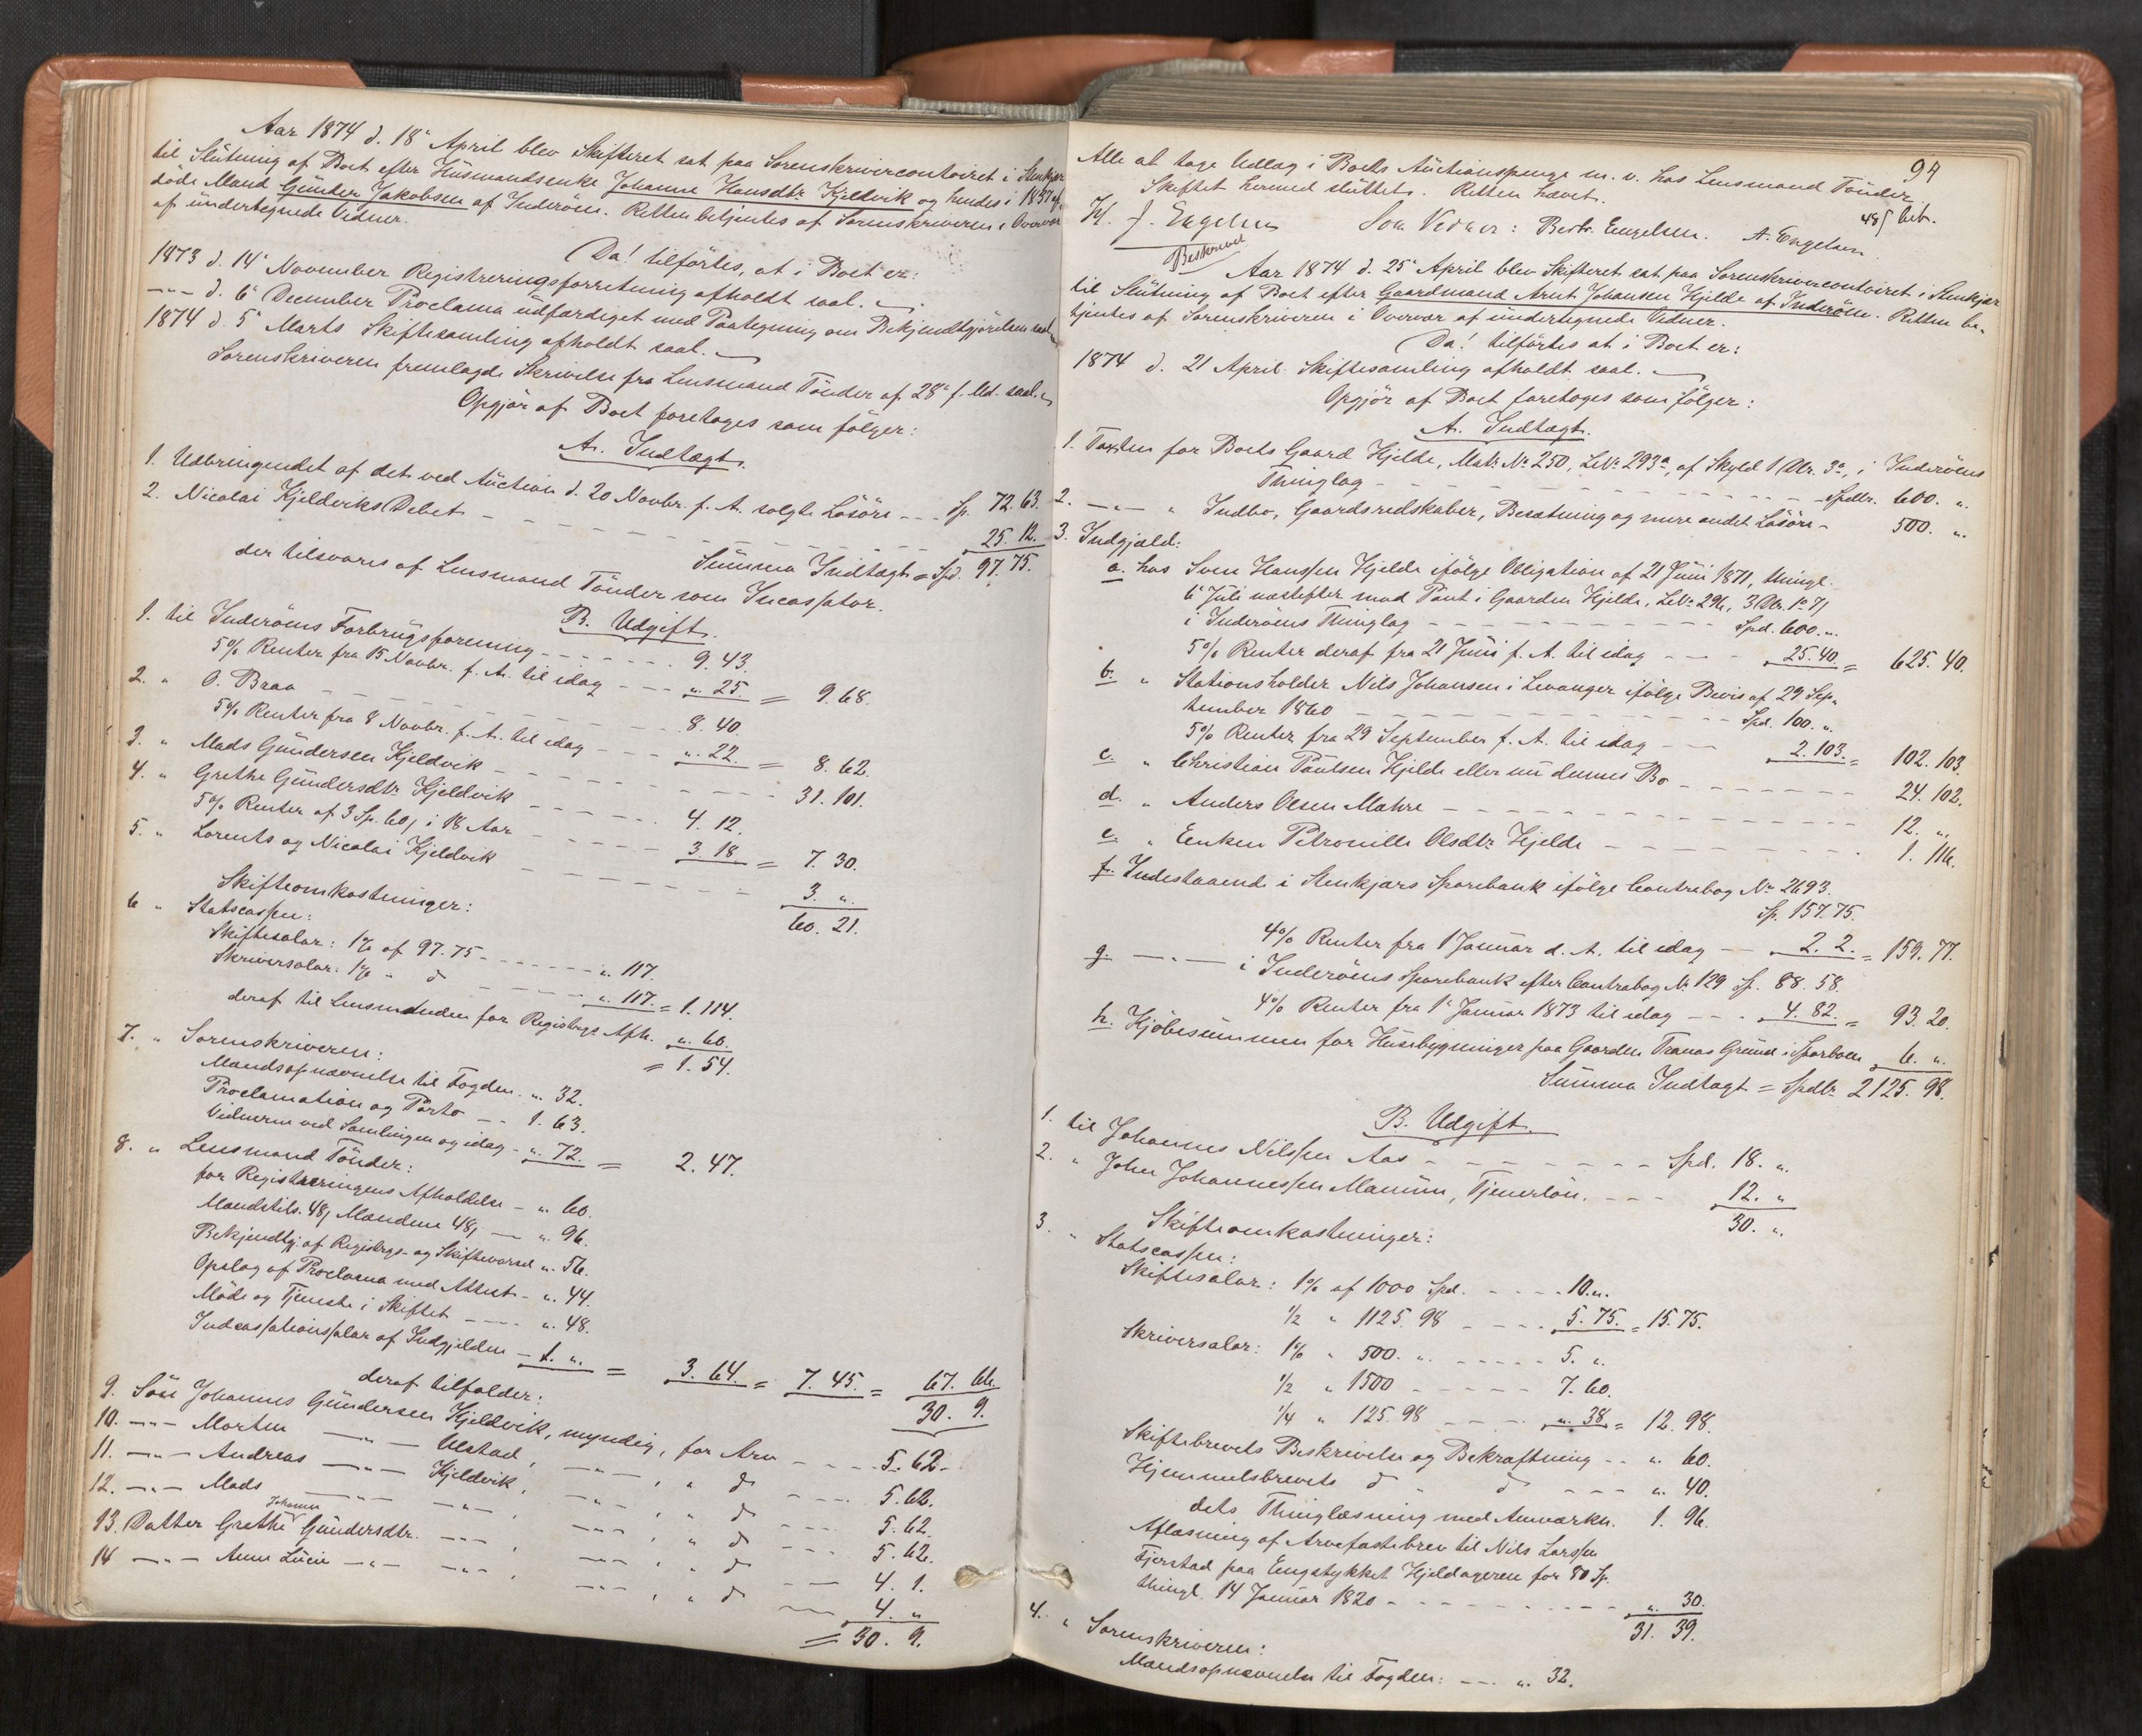 Aar 1874 d. 18de April blev Skifteret sat paa Sorenskrivercontoiret i Stenkjær
til Slutning af Boet efter Husmandsenke Johanne Hansdtr. Kjeldvik og hendes i 1857 af-
døde Mand Gunder Jakobsen af Inderøen. Retten betjentes af Sorenskriveren i Overvær
af undertegnede Vidner.
Da! tilførtes, at i Boet er:
1873 d. 14de November Registreringsforretning afholdt saal.
-"- d. 6te December Proclama udfærdiget med Paategning om Bekjendtgjørelsen saal.
1874 d. 5te Marts Skiftesamling afholdt saal.
Sorenskriveren fremlagde Skrivelse fra Lensmand Tønder af 28de f. Md. saal.
Opgjør af Boet foretoges som følger:
A. Indtægt.
1. Udbringendet af det ved Auction d. 20 Novbr. f. A. solgte Løsøre - - - Sp. 72. 63.
2. Nicolai Kjeldviks Debet - - - 25. 12.
Summa Indtægt = Spd. 97. 75.
der tilsvares af Lensmand Tønder som Incassator.
B. Udgift.
1. til Inderøens Forbrugsforening - - - 9. 43.
5% Renter fra 15 Novbr. f. A. til idag - - - ". 25. = 9. 68.
2. " O. Braa - - - 8. 40.
5% Renter fra 8 Novbr. f. A. til idag - - - ". 22. = 8. 62.
3. " Mads Gundersen Kjeldvik - - - 31. 101.
4. " Grethe Gundersdtr. Kjeldvik - - - 4. 12.
5% Renter af 3 Sp. 60 ß i 18 Aar - - - 3 18. = 7. 30.
5. " Lorents og Nicolai Kjeldvik - - - 3. ".
60. 21.
Skifteomkostninger:
6 " Statscassen:
Skiftesalær: 1% af 97. 75 - - - ". 117.
Skriversalær: 1% - d - - - ". 117. = 1. 114.
deraf til Lensmanden for Registrgs Afh. ". 60.
= 1. 54.
7. " Sorenskriveren:
Mandsopnævnelse til Fogden. ". 32.
Proclamation og Porto - - 1. 63.
Vidnerne ved Samlingen og idag - ". 72. = 2. 47.
8. " Lensmand Tønder:
for Registreringens Afholdelse - ". 60.
Mandstils. 48 ß Mændene 48 ß — ". 96.
Bekjendtgj. af Registrgs- og Skiftevarsel ". 56.
Opslag af Proclama med Attest - ". 44.
Møde og Tjeneste i Skiftet - - - ". 48.
Indcassationssalær af Indgjelden - 1. ". = 3. 64. = 7. 45. = 67. 66.
30. 9.
deraf tilfalder:
9. Søn Johannes Gundersen Kjeldvik, myndig, for Arv - - - 5. 62.
10. -"- Morten -"- Ulstad, -"-, " d - - - 5. 62.
11. -"- Andreas -"- Kjeldvik, -"-, " d - - - 5. 62.
12. -"- Mads -"- -"-, -"-, " d - - - 5. 62.
13. Datter Grethe Johanne Gundersdtr. -"-, -"-, " d — 4. 1.
14 -"- Anne Lucie -"- -"-, -"-, " d — 4. "
= 30. 9.
94
Alle at tage Udlæg i Boets Auctionspenge m. v. hos Lensmand Tønder
Skiftet hermed sluttet. Retten hævet.
48 ß bet.
J. Engelsen Som Vidner: Berh. Engelsen. A. Engelsen.
Beskrevet
Aar 1874 d. 25de April blev Skifteret sat paa Sorenskrivercontoiret i Stenkjær
til Slutning af Boet efter Gaardmand Arnt Johansen Hjelde af Inderøen. Retten be-
tjentes af Sorenskriveren i Overvær af undertegnede Vidner.
Da! tilførtes at i Boet er:
1874 d. 21 April Skiftesamling afholdt saal.
Opgjør af Boet foretoges som følger:
A. Indtægt.
1. Taxten for Boets Gaard Hjelde, Matr. No 250, LNo 293a, af Skyld 1 Dlr. 3 ß, i Inderøens
Thinglag - - - Spdlr. 600. ".
2. -"- " Indbo, Gaardsredskaber, Besætning og mere andet Løsøre - 500. ".
3. Indgjæld:
a. hos Sven Hanssen Hjelde ifølge Obligation af 21 Juni 1871, thingl.
6te Juli næstefter mod Pant i Gaarden Hjelde, LNo 296, 3 Dlr. 1 ß 71
i Inderøens Thinglag - - - Spd. 600. ".
5% Renter deraf fra 21 Juni f. A. til idag - - - 25. 40. = 625. 40.
b. " Stationsholder Nils Johansen i Levanger ifølge Bevis af 29 Sep-
tember 1860 - - - Spd. 100. ".
5% Renter fra 29 September f. A. til idag - - - 2. 103. = 102. 103.
c. " Christian Paulsen Hjelde eller nu dennes Bo - - - 24. 102.
d. " Anders Olsen Mahre - - - 12. ".
e. " Enken Petronille Olsdtr. Hjelde - - - 1. 116.
f. Indestaaende i Stenkjærs Sparebank ifølge Contrabog No 2693.
Sp. 157. 75.
4% Renter fra 1 Januar d. A. til idag — 2. 2. = 159. 77.
g. -"- i Inderøens Sparebank efter Contrabog No 129 Sp. 88. 58.
4% Renter fra 1de Januar 1873 til idag - - - 4. 82. = 93. 20.
h. Kjøbesummen for Husebygninger paa Gaarden Tranas Grund i Sparboen 6. ".
Summa Indtægt = Spdlr. 2125. 98.
B. Udgift.
1. til Johannes Nilssen Aas - - - Spd. 18. ".
2. " John Johannessen Manum, Tjenerløn. - - - 12. "
30. ".
Skifteomkostninger:
3. " Statscassen:
Skiftesalær: 1% af 1000 Spd. - - - 10. ".
1/2 " 1125. 98 - - - 5. 75. = 15. 75.
Skriversalær: 1% " 500. ". - - - 5. ".
1/2 " 1500 - - - 7. 60.
1/4 " 125. 98 - - - ". 38 = 12. 98.
Skiftebrevets Beskrivelse og Bekræftning - - ". 60.
Hjemmelsbrevets d " d - - - ". 40.
dets Thinglæsning med Anmærkn. 1. 96.
Aflæsning af Arvefæstebrev til Nils Larssen
Fjerstad paa Engstykket Hjeldageren for 80 Sp.
thingl. 14 Januar 1820 - - - ". 30.
31. 39.
4. " Sorenskriveren:
Mandsopnævnelse til Fogden: - - - ". 32.